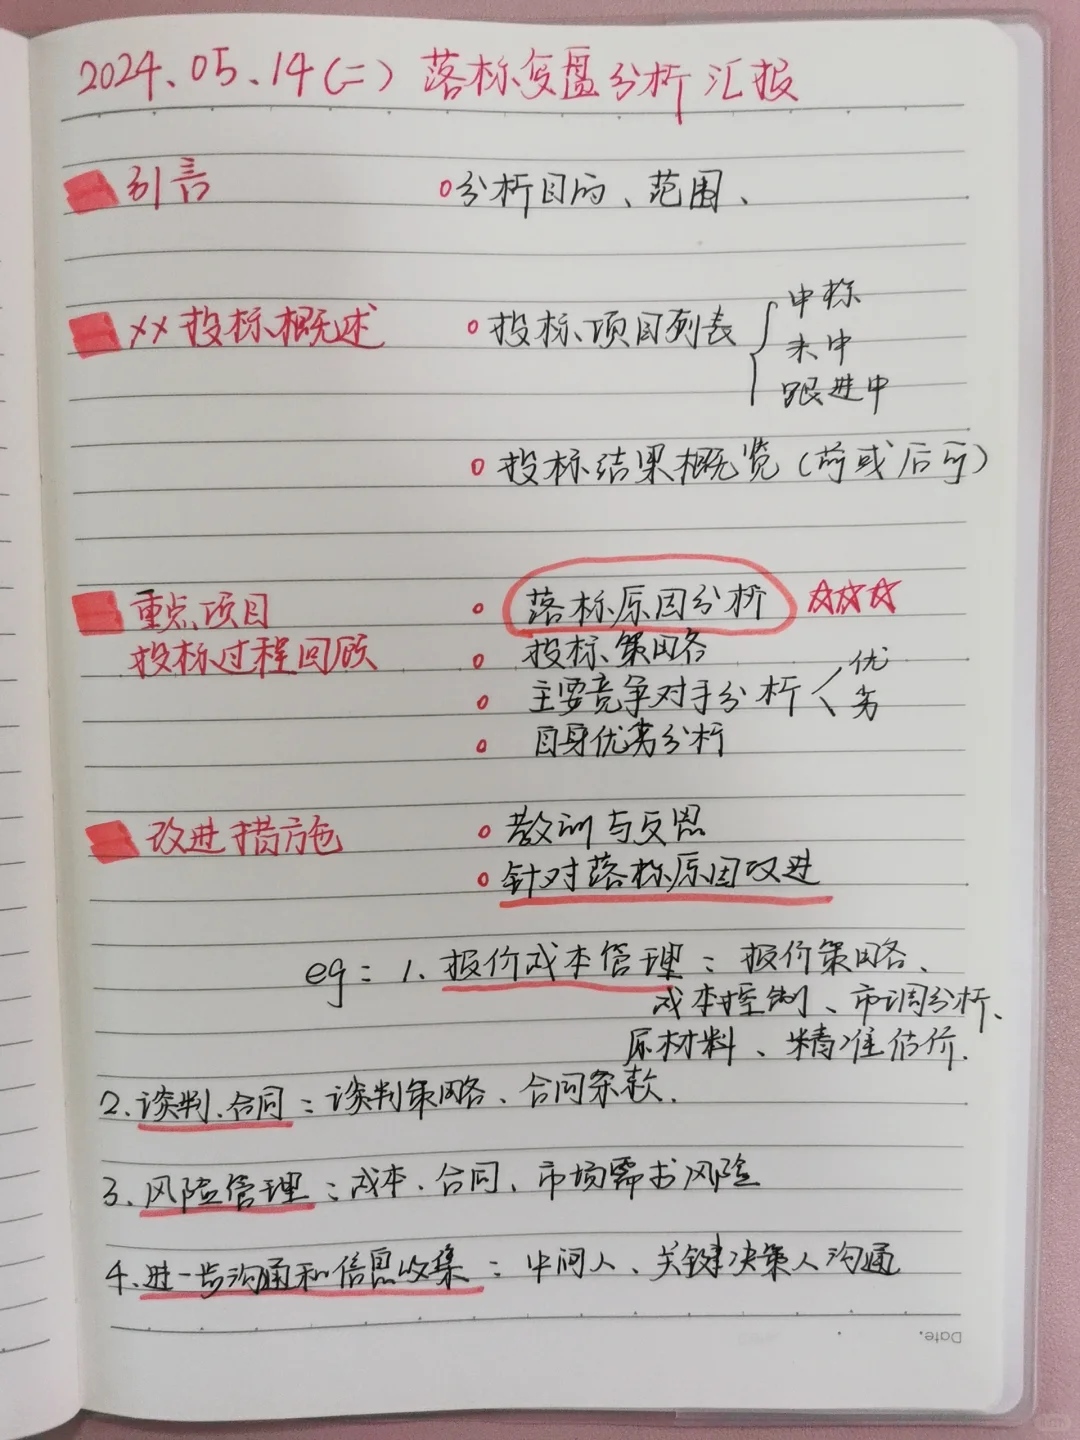 2024.05.14(二) 落标复盘分析汇报
引言 分析目的、范围、
××投标概述 投标项目列表 中标
未中
跟进中
投标结果概览(前或后可)
重点项目 落标原因分析 ☆☆☆
投标过程回顾 投标策略
主要竞争对手分析 优
劣
自身优劣分析
改进措施 教训与反思
针对落标原因改进
eg: 1. 报价成本管理:报价策略、
成本控制、市调分析、
原材料、精准估价.
2.谈判.合同:谈判策略、合同条款.
3.风险管理:成本.合同、市场需求风险
4.进一步沟通和信息收集:中间人、关键决策人沟通
Date.